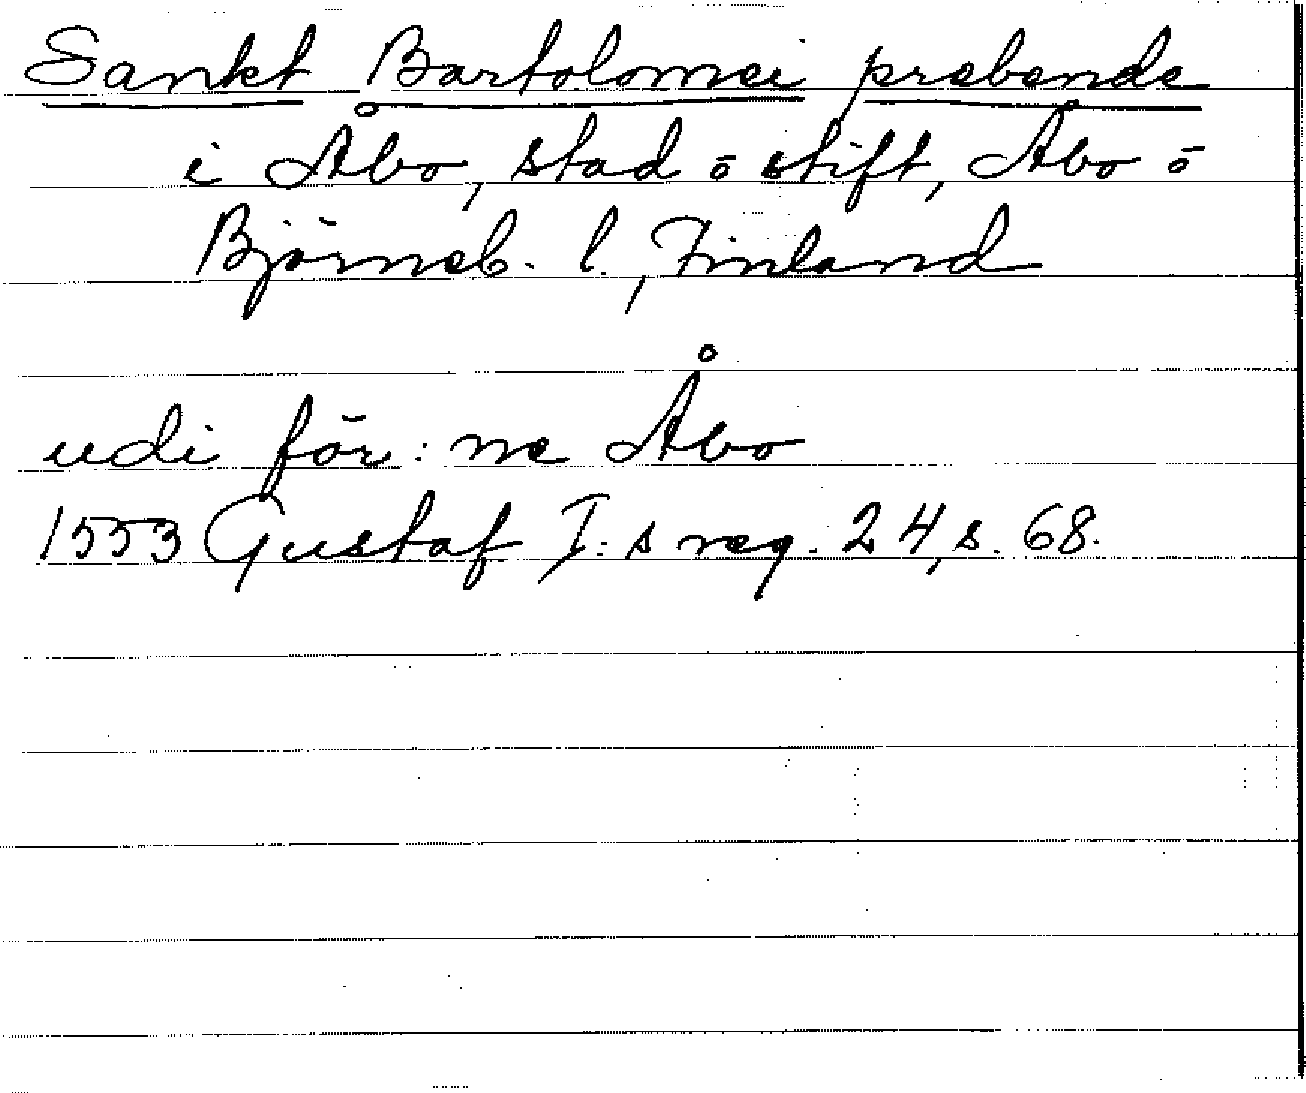 Sankt Bartolomei prebende
i Åbo, stad o stift, Åbo o
Björneb. l., Finland
udi för: ne Åbo
1553 Gustaf I: s reg. 24, s. 68.